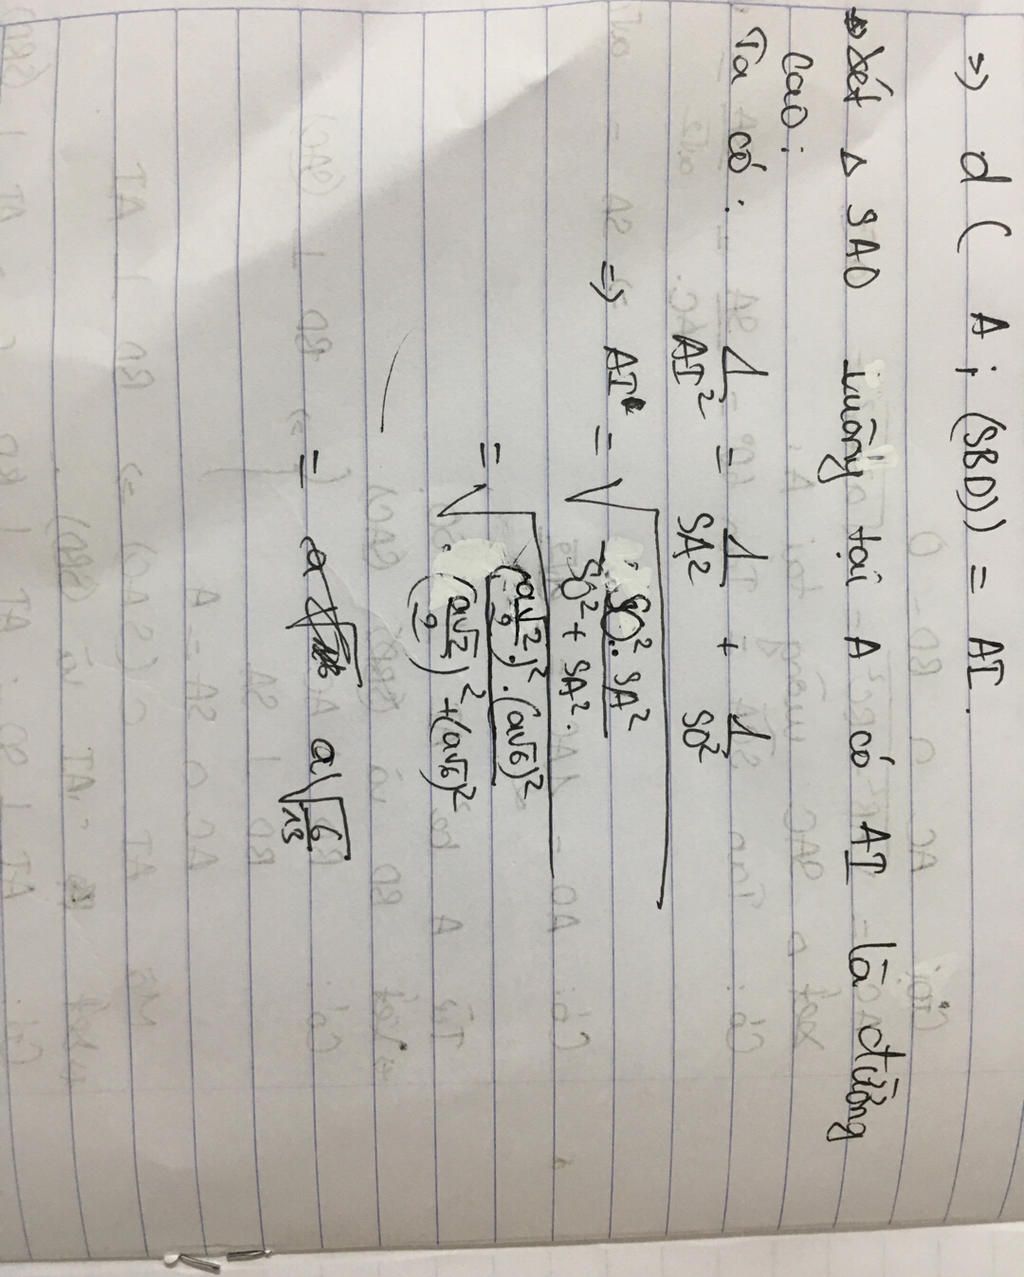 => d ( A ; (SBD)) = AI.
Xét Δ SAO vuông tại A có AI là đường
cao:
Ta có: 1/AI² = 1/SA² + 1/SO²
=> AI = √(SO².SA² / SO² + SA²)
= √((a√2/2)².(a√6)² / (a√2/2)² + (a√6)²)
= a√(6/13)